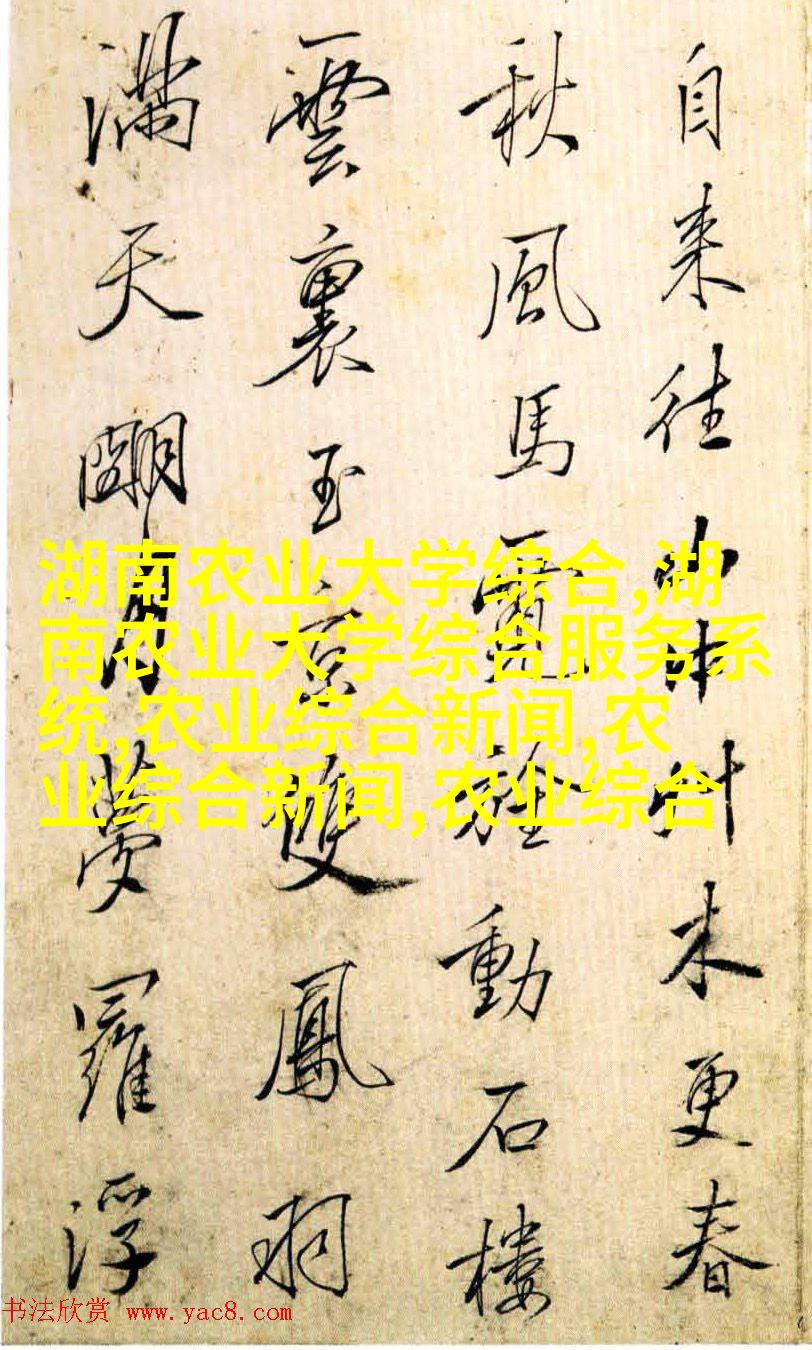 自来往山中艸木更春
秋風馬霓旌動石樓
雲裏玉京雙鳳羽
滿天朙月夢羅浮
湖南农业大学综合,湖
南农业大学综合服务系
统,农业综合新闻,农
业综合新闻,农业综合
书法欣赏 www.yac8.com